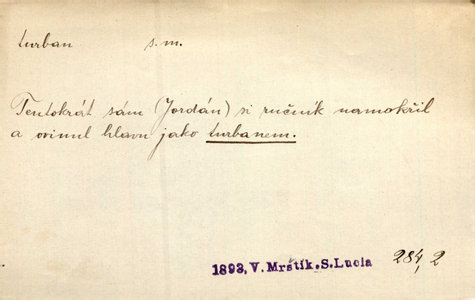 turban s. m.
Tentokrát sám (Jordán) si ručník namokřil
a ovinul hlavu jako turbanem.
1893, V. Mrštík, S. Lucia 284, 2